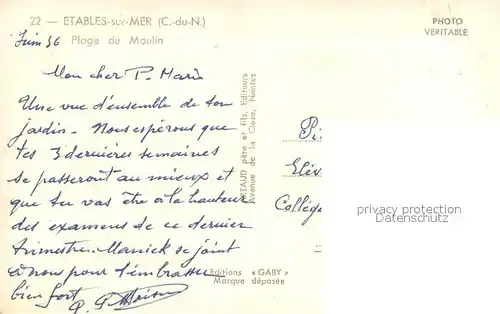 22 — ETABLES-sur-MER (C.-du-N.)
Juin 56 Plage du Moulin
PHOTO
VERITABLE
Mon cher P. Marie
Une vue d'ensemble de ton
jardin - Nous espérons que
tes 3 dernières semaines
se passeront au mieux et
que tu vas être à la hauteur
des examens de ce dernier
trimestre. Mannick se joint
à nous pour t'embrasser
bien fort
ARTAUD père et fils, Editeurs
Avenue de la Close, Nantes
Editions « GABY »
Marque déposée
Elèv
Collège
privacy protection
Datenschutz